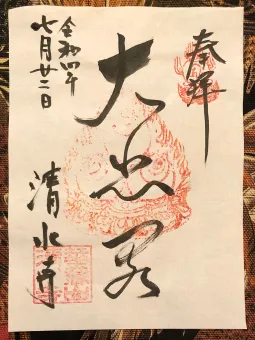 奉拝
大忿怒
令和四年
七月廿二日
清水寺